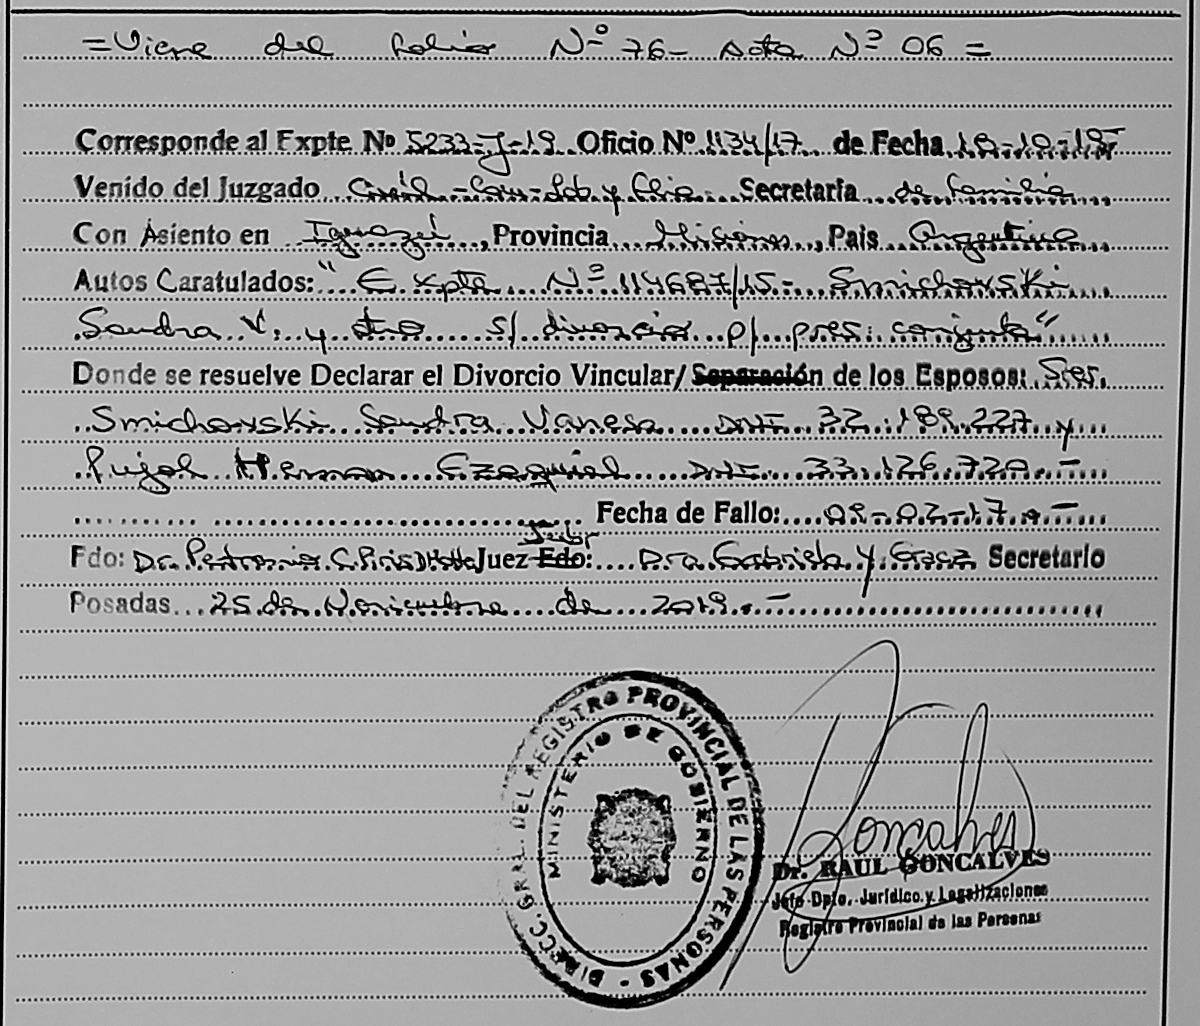 =Viene del folio Nº 76- Acta Nº 06=
Corresponde al Expte Nº 5233-J-19 Oficio Nº 1134/17 de Fecha 18-10-18
Venido del Juzgado Civil-Com-Lab y Flia Secretaria de familia
Con Asiento en Iguazú, Provincia Misiones, Pais Argentina
Autos Caratulados: "Expte Nº 114687/15- Smichovski
Sandra V. y otro s/ divorcio p/ pres. conjunta"
Donde se resuelve Declarar el Divorcio Vincular/Separación de los Esposos: Sres.
Smichovski Sandra Vanesa DNI 32.189.227 y
Pujol Hernan Ezequiel DNI 33.126.720.-
Fecha de Fallo: 09-02-17.-
Fdo: Dr. Juez Fdo: Dra. Gabriela Y Secretario
Posadas 25 de Noviembre de 2019.-
DIRECC. GRAL. DEL REGISTRO PROVINCIAL DE LAS PERSONAS
MINISTERIO DE GOBIERNO
Goncalves
Dr. RAUL GONCALVES
Jefe Dpto. Jurídico y Legalizaciones
Registro Provincial de las Personas